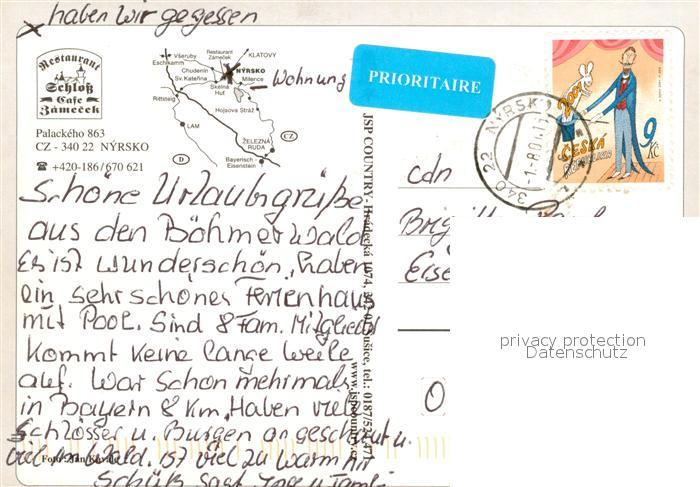 x haben wir gegessen
Restaurant
Schloß
Cafe
Zámeček
Palackého 863
CZ - 340 22 NÝRSKO
☎ +420-186/670 621
Všeruby
Eschlkamm
Restaurant
Zámeček
KLATOVY
Chudenín
NÝRSKO
Sv. Kateřina
Milence
Skelná
Huť
Rittsteig
Hojsova Stráž
LAM
ŽELEZNÁ
RUDA
CZ
D
Bayerisch-
Eisenstein
Wohnung
PRIORITAIRE
340 22 NÝRSKO
ČESKÁ
REPUBLIKA
9
KČ
Schöne Urlaubsgrüße
aus den Böhmerwald
Es ist wunderschön, haben
ein sehr schönes Ferienhaus
mit Pool. Sind 8 Fam. Mitglieder
Kommt keine lange weile
auf. War schon mehrmals
in Bayern 8 km, Haben viele
Schlösser u. Burgen angeschaut u.
viel im Wald. ist viel zu warm hir
Foto: Jan Kavale
Schüß sagt
JSP COUNTRY, Hrádecká 1074,
tel.: 0187/
cdn
privacy protection
Datenschutz